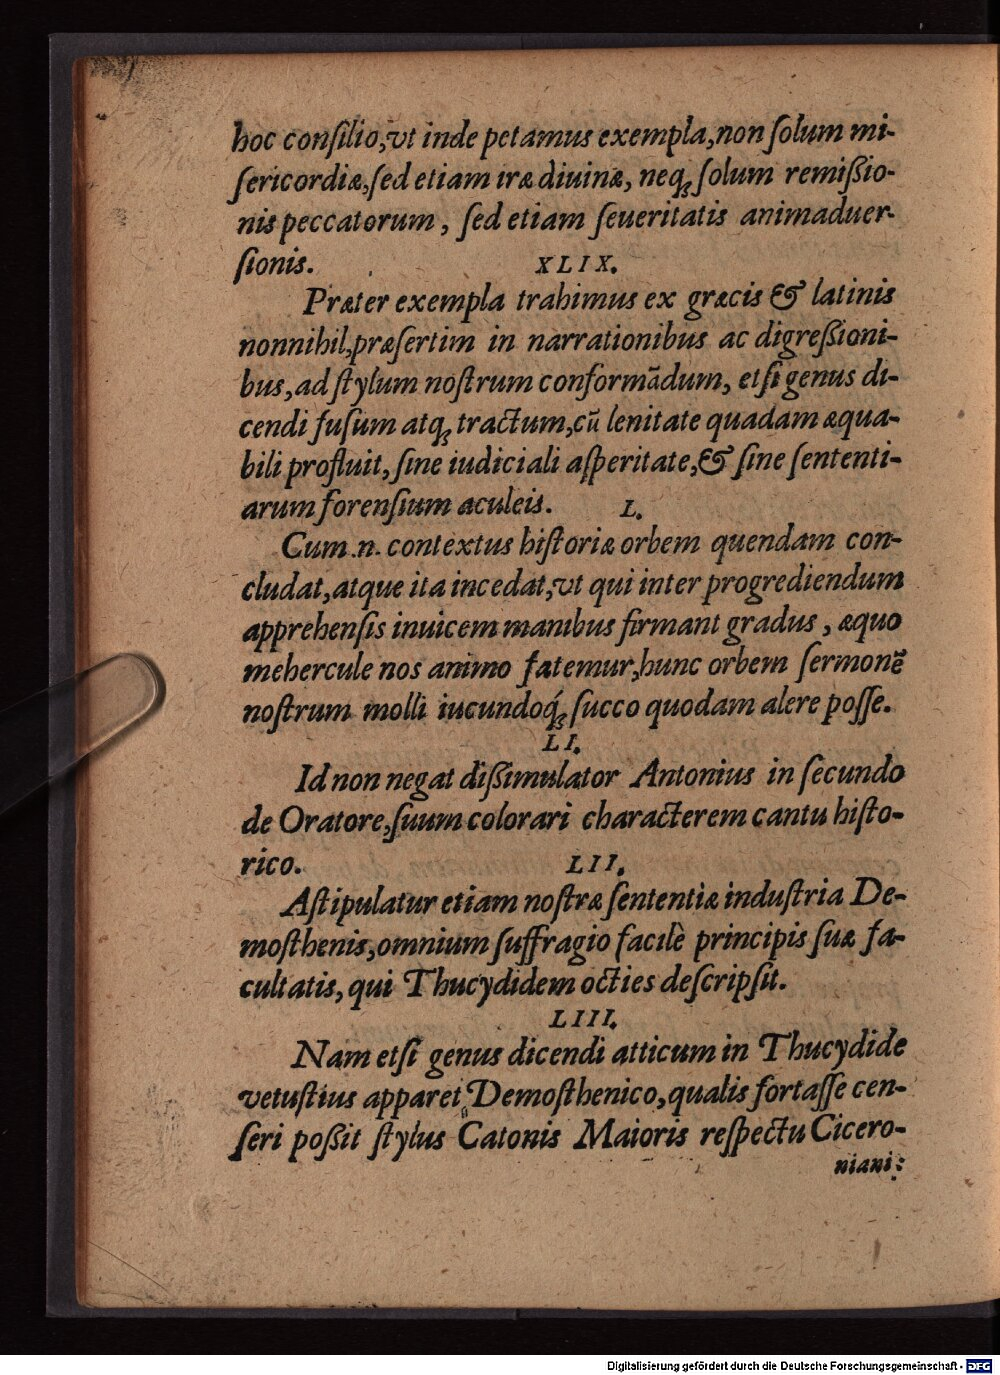 hoc conſilio, vt inde petamus exempla, non ſolum mi-
ſericordiæ, ſed etiam iræ diuinæ, neq; ſolum remißio-
nis peccatorum, ſed etiam ſeueritatis animaduer-
ſionis. XLIX.
Præter exempla trahimus ex græcis & latinis
nonnihil, præſertim in narrationibus ac digreßioni-
bus, ad ſtylum noſtrum conformādum, etſi genus di-
cendi fuſum atq; tractum, cū lenitate quadam æqua-
bili profluit, ſine iudiciali aſperitate, & ſine ſententi-
arum forenſium aculeis. L.
Cum .n. contextus hiſtoriæ orbem quendam con-
cludat, atque ita incedat, vt qui inter progrediendum
apprehenſis inuicem manibus firmant gradus, æquo
mehercule nos animo fatemur, hunc orbem ſermonē
noſtrum molli iucundoq́; ſucco quodam alere poſſe.
LI.
Id non negat dißimulator Antonius in ſecundo
de Oratore, ſuum colorari characterem cantu hiſto-
rico. LII.
Aſtipulatur etiam noſtræ ſententiæ induſtria De-
moſthenis, omnium ſuffragio facilè principis ſuæ fa-
cultatis, qui Thucydidem octies deſcripſit.
LIII.
Nam etſi genus dicendi atticum in Thucydide
vetuſtius apparet Demoſthenico, qualis fortaſſe cen-
ſeri poßit ſtylus Catonis Maioris reſpectu Cicero-
niani:
Digitalisierung gefördert durch die Deutsche Forschungsgemeinschaft - DFG